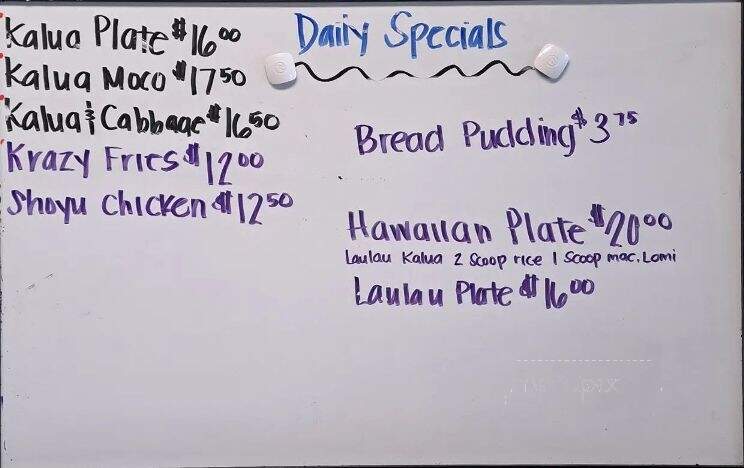 Daily Specials
Kalua Plate $16.00
Kalua Moco $17.50
Kalua & Cabbage $16.50
Krazy Fries $12.00
Shoyu Chicken $12.50
Bread Pudding $3.75
Hawaiian Plate $20.00
Laulau Kalua 2 Scoop rice 1 Scoop mac. Lomi
Laulau Plate $16.00